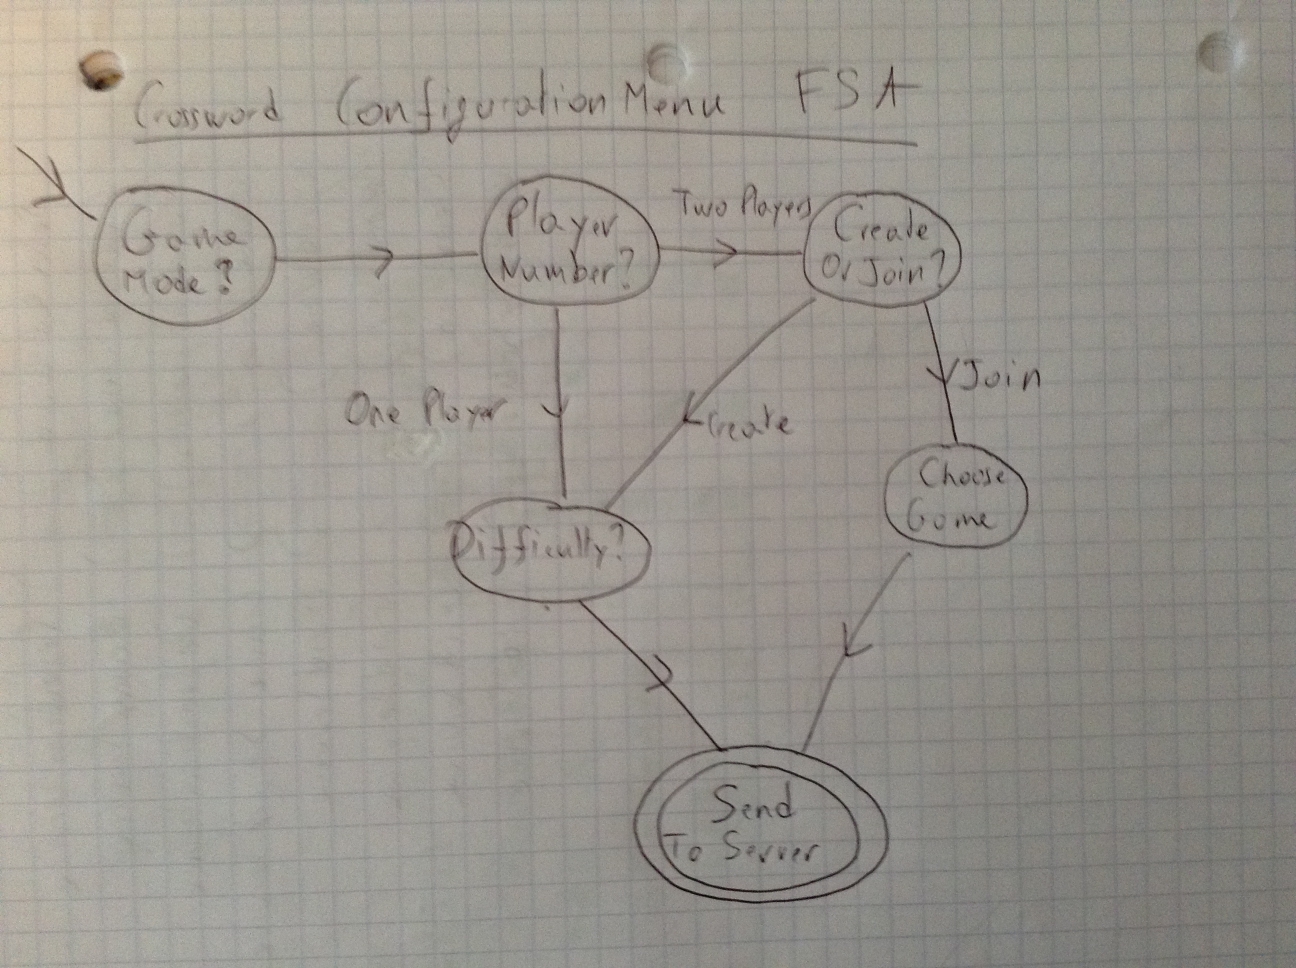 Crossword Configuration Menu FSA
Game
Mode?
Player
Number?
Two Players
Create
Or Join?
One Player
Create
Join
Choose
Game
Difficulty?
Send
To Server